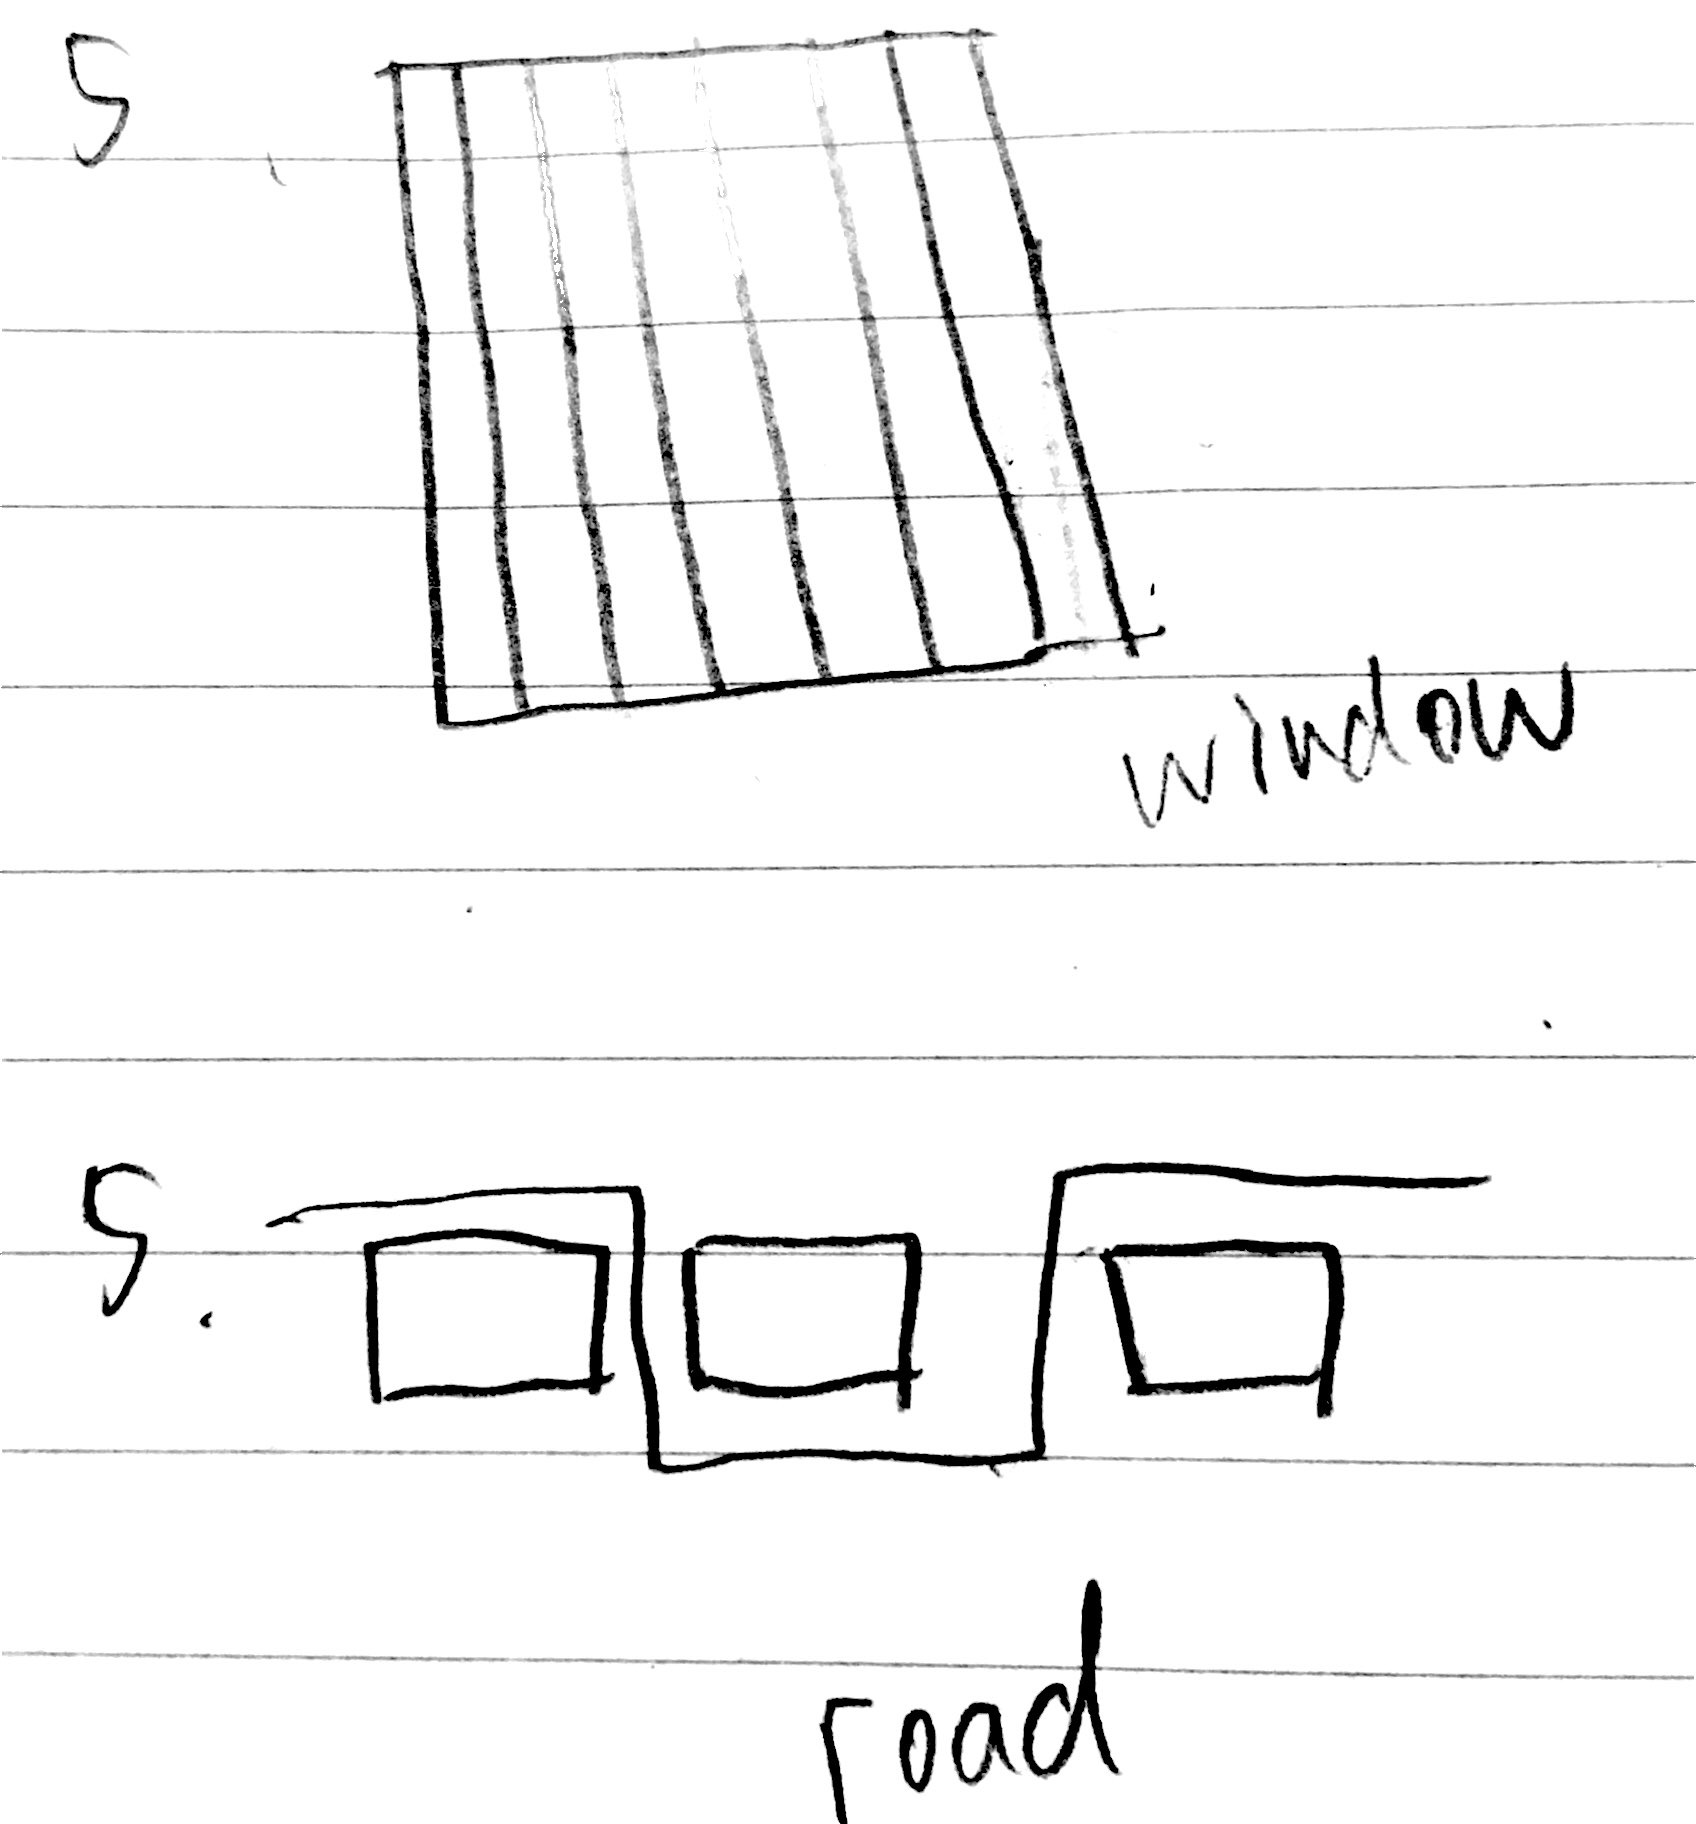 5
window
5.
road